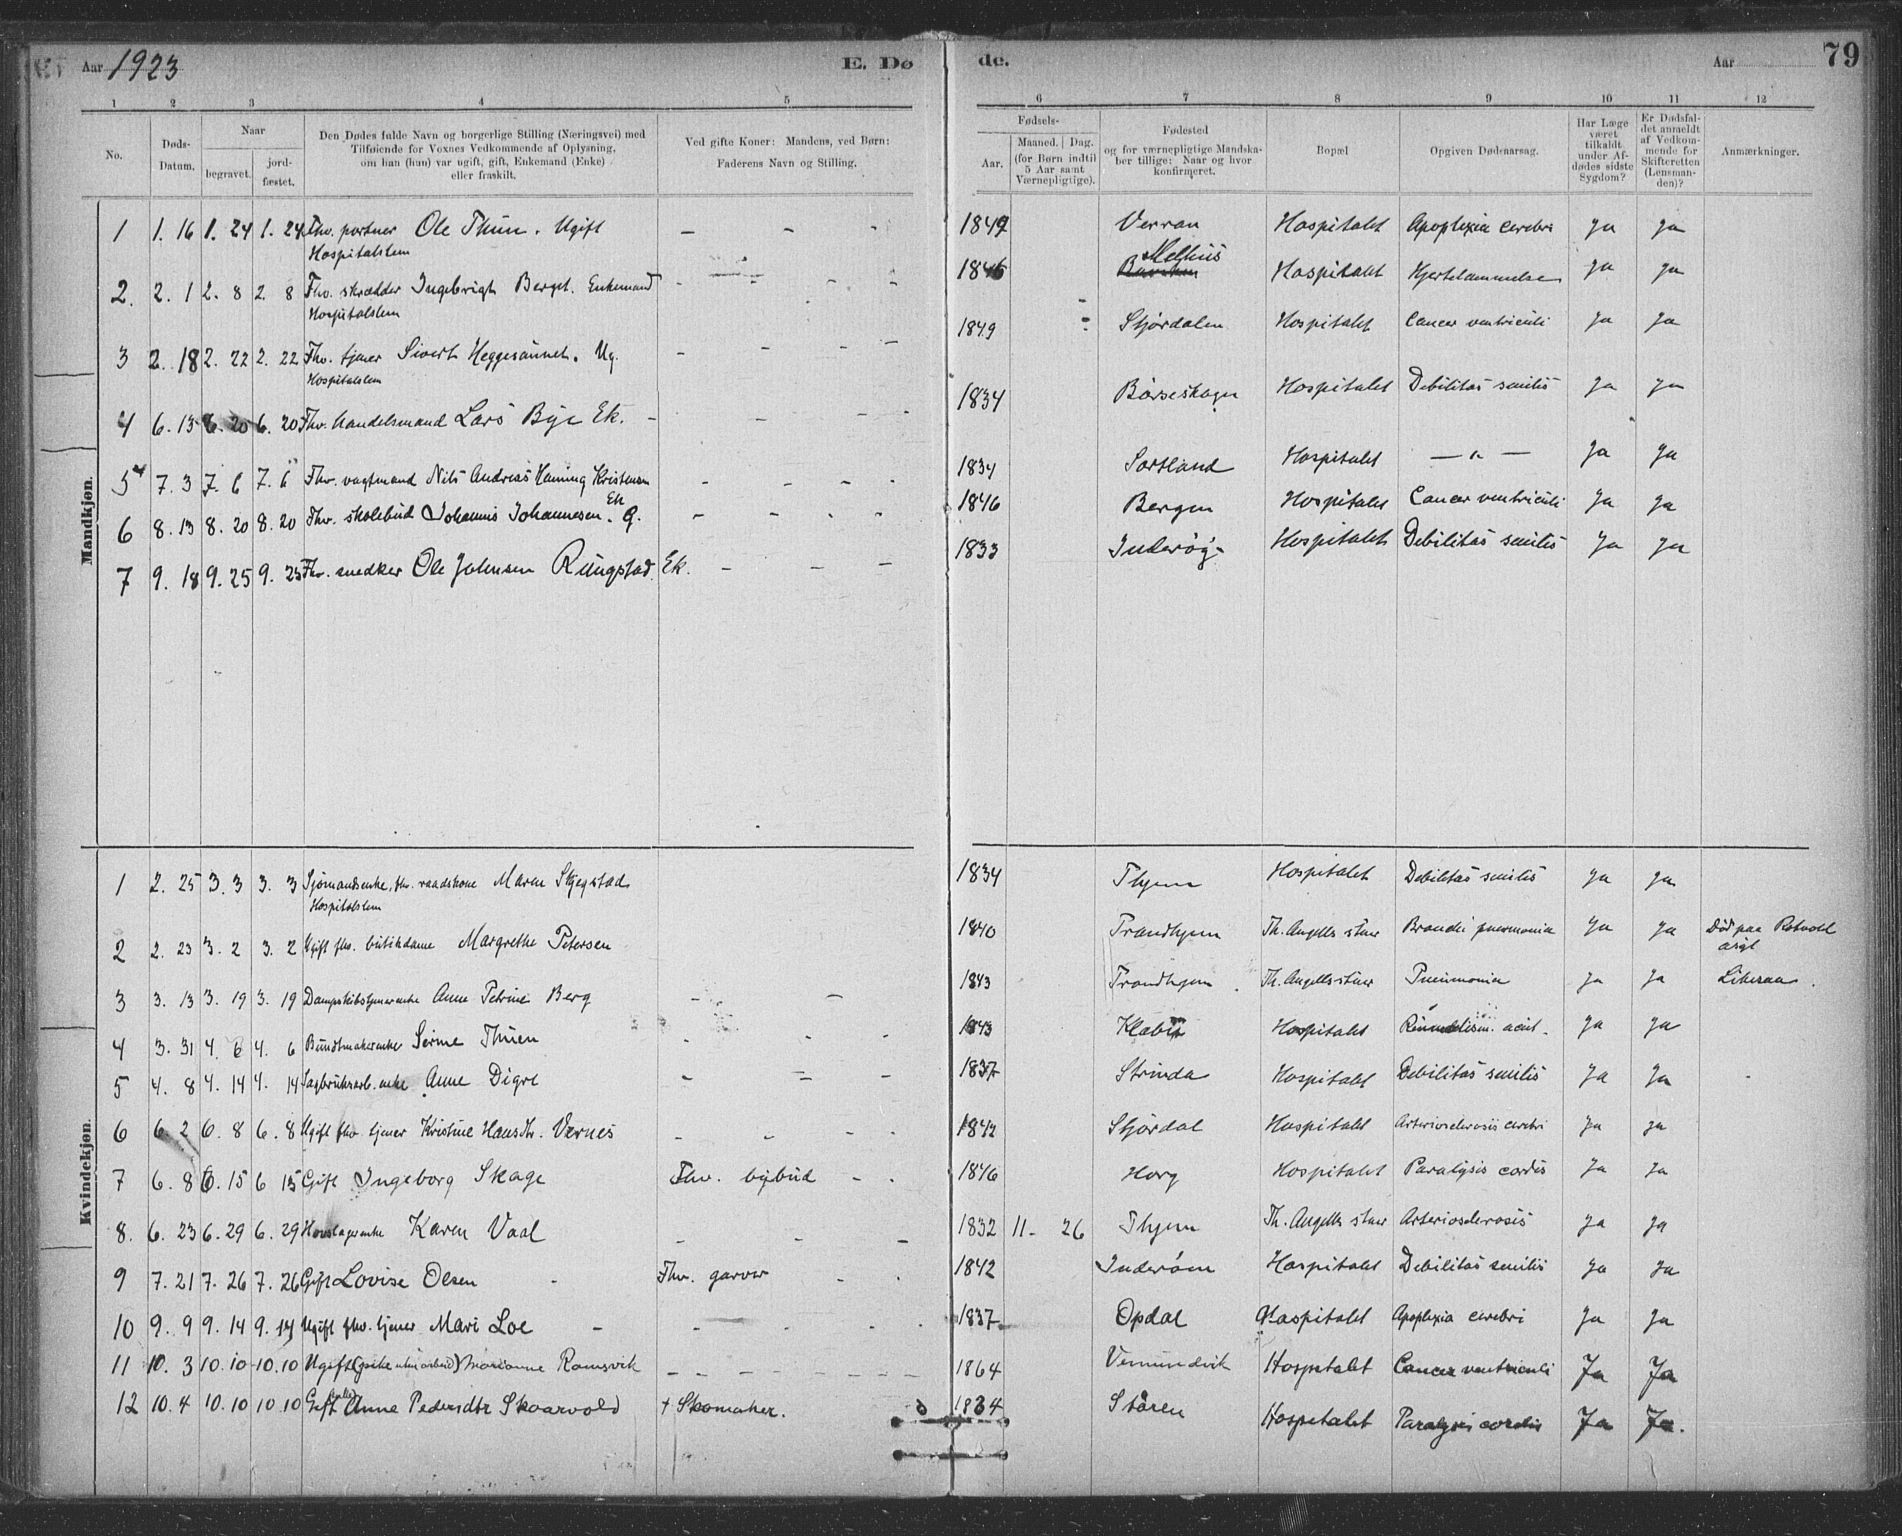 Aar 1923 E. Døde. Aar 79
1 2 3 4 5 6 7 8 9 10 11 12
No. Døds-Datum. Naar begravet. jord-fæstet. Den Dødes fulde Navn og borgerlige Stilling (Næringsvei) med Tilføiende for Voxnes Vedkommende af Oplysning, om han (hun) var ugift, gift, Enkemand (Enke) eller fraskilt. Ved gifte Koner: Mandens, ved Børn: Faderens Navn og Stilling. Fødsels- Aar. Maaned. Dag. (for Børn indtil 5 Aar samt Værnepligtige). Fødested og for værnepligtige Mandska-ber tillige: Naar og hvor konfirmeret. Bopæl Opgiven Dødsaarsag. Har Læge været tilkaldt under Af-dødes sidste Sygdom? Er Dødsfal-det anmeldt af Vedkom-mende for Skifteretten (Lensman-den)? Anmærkninger.
Mandkjøn.
1 1. 16 1. 24 1. 24 Fhv. portner Ole Thun. Ugift - - - 1849 Verran Hospitalet Apoplexia cerebri Ja Ja
Hospitalslem
2. 2. 1 2. 8 2. 8 Fhv. skrædder Ingebrigt Berget. Enkemand - - - 1846 Melhus Hospitalet Hjertelammelse Ja Ja
Hospitalslem
3 2. 18 2. 22 2. 22 Fhv. tjener Sivert Heggesaunet. Ug. - - - - 1849 Stjørdalen Hospitalet Cancer ventriculi Ja Ja
Hospitalslem
4 6. 13 6. 20 6. 20 Fhv. handelsmand Lars Bye Ek. - - - - 1834 Børseskogn Hospitalet Debilitas senilis Ja Ja
5 7. 3 7. 6 7. 6 Fhv. vagtmand Nils Andreas Haning Kristensen Ek - - - - 1834 Sortland Hospitalet — " — Ja Ja
6 8. 13 8. 20 8. 20 Fhv. skolebud Johannes Johannesen. G. - - - - 1846 Bergen Hospitalet Cancer ventriculi Ja Ja
7 9. 18 9. 25 9. 25 Fhv. snedker Ole Johnsen Rungstad. Ek. - - - 1833 Inderøy- Hospitalet Debilitas senilis Ja Ja
Kvindekjøn.
1 2. 25 3. 3 3. 3 Sjømandsenke, fhv. raadskone Maren Stjegstad 1834 Thjem Hospitalet Debilitas senilis Ja Ja
Hospitalslem
2 2. 23 3. 2 3. 2 Ugift fhv. butikdame Margrethe Petersen 1840 Trondhjem Th. Angells stuer Bronchi pneumonia Ja Ja Død paa Rotvold asyl
3 3. 13 3. 19 3. 19 Dampskibstjenerenke Anne Petrine Berg - - 1843 Trondhjem Th. Angells stuer Pneumonia Ja Ja Likesaa
4 3. 31 4. 6 4. 6 Buntmakerenke Serine Thuen - - - 1843 Klæbu Hospitalet Reumatism. acut. Ja Ja
5 4. 8 4. 14 4. 14 Sagbruksarb. enke Anne Digre - - - 1837 Strinda Hospitalet Debilitas senilis Ja Ja
6 6. 2 6. 8 6. 8 Ugift fhv. tjener Kristine Hansdtr. Vernes - - - - 1842 Stjørdal Hospitalet Arteriosclerosis cerebri Ja Ja
7 6. 8 6. 15 6 15 Gift Ingeborg Skage Fhv. bybud - - 1846 Horg Hospitalet Paralysis cordis Ja Ja
8. 6. 23 6. 29 6. 29 Hovslagerenke Karen Vaal - - - 1832 11- 26 Thjem Th. Angells stuer Arteriosclerosis Ja Ja
9 7. 21 7. 26 7. 26 Gift Lovise Olsen - Fhv. garver - - 1842 Inderøen Hospitalet Debilitas senilis Ja Ja
10 9. 9 9. 14 9. 14 Ugift fhv. tjener Mari Loe - - - - - 1837 Opdal Hospitalet Apoplexia cerebri Ja Ja
11 10. 3 10. 10 10. 10 Ugift (pike uten arbeid) Marianne Ramsvik - - - - 1864 Vemundvik Hospitalet Cancer ventriculi Ja Ja
12 10. 4 10. 10 10 10 Gift Anne Pedersdtr Skaarvold + Skomaker. 1834 Støren Hospitalet Paralysis cordis Ja Ja.